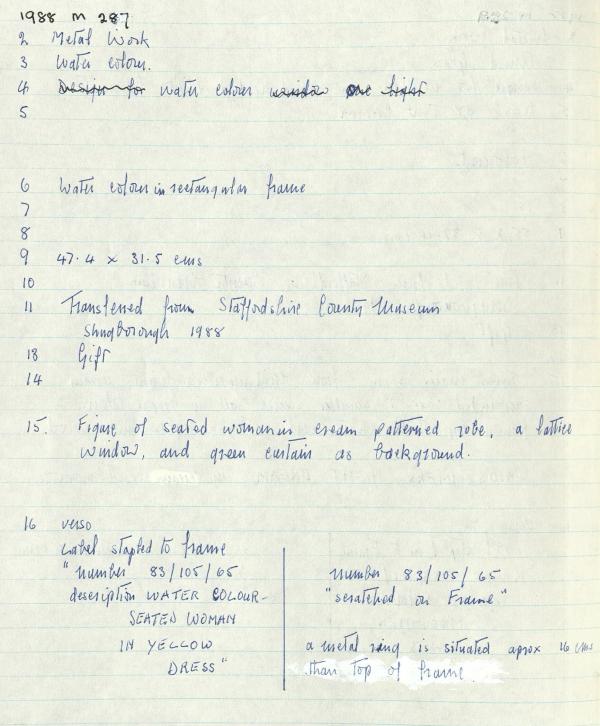 1988 M 287
2 Metal Work
3 Water colour.
4 Design for water colour window one light
5
6 Water colour in rectangular frame
7
8
9 47.4 x 31.5 cms
10
11 Transferred from Staffordshire County Museum
Shugborough 1988
18 Gift
14
15. Figure of seated woman in cream patterned robe, a lattice
window, and green curtain as background.
16 verso
Label stapled to frame
"number 83/105/65
description WATER COLOUR-
SEATED WOMAN
IN YELLOW
DRESS"
number 83/105/65
"scratched on Frame"
a metal ring is situated aprox 16 cms
than top of frame.